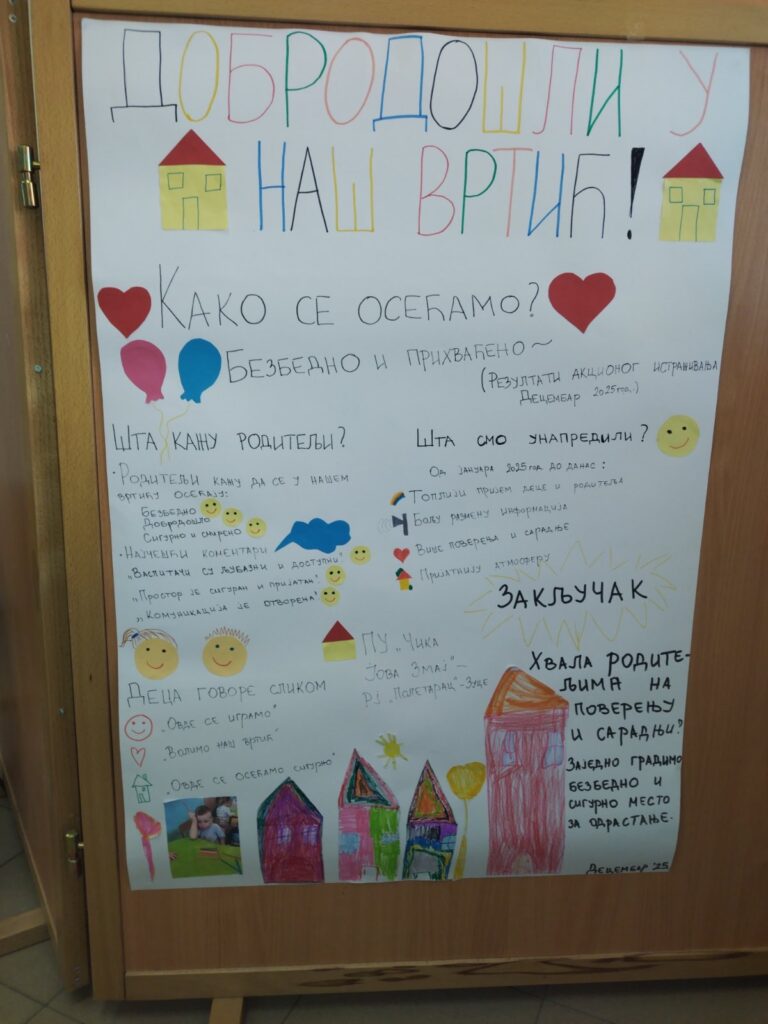 ДОБРОДОШЛИ У
НАШ ВРТИЋ!
КАКО СЕ ОСЕЋАМО?
БЕЗБЕДНО И ПРИХВАЋЕНО~
(РЕЗУЛТАТИ АКЦИОНОГ ИСТРАЖИВАЊА
ДЕЦЕМБАР 2025 год.)
ШТА КАЖУ РОДИТЕЉИ?
·РОДИТЕЉИ КАЖУ ДА СЕ У НАШЕМ
ВРТИЋУ ОСЕЋАЈУ:
БЕЗБЕДНО
ДОБРОДОШЛО
СИГУРНО И СМИРЕНО
·НАЈЧЕШЋИ КОМЕНТАРИ
„ВАСПИТАЧИ СУ ЉУБАЗНИ И ДОСТУПНИ"
„ПРОСТОР ЈЕ СИГУРАН И ПРИЈАТАН"
„КОМУНИКАЦИЈА ЈЕ ОТВОРЕНА"
ШТА СМО УНАПРЕДИЛИ?
ОД ЈАНУАРА 2025 ГОД ДО ДАНАС:
ТОПЛИЈИ ПРИЈЕМ ДЕЦЕ И РОДИТЕЉА
БОЉУ РАЗМЕНУ ИНФОРМАЦИЈА
ВИШЕ ПОВЕРЕЊА И САРАДЊЕ
ПРИЈАТНИЈУ АТМОСФЕРУ
ЗАКЉУЧАК
ХВАЛА РОДИТЕ-
ЉИМА НА
ПОВЕРЕЊУ
И САРАДЊИ!
ЗАЈЕДНО ГРАДИМО
БЕЗБЕДНО И
СИГУРНО МЕСТО
ЗА ОДРАСТАЊЕ.
ДЕЦЕМБАР '25
ПУ „ЧИКА
ЈОВА ЗМАЈ"-
РЈ „ПОЛЕТАРАЦ"-ЗУЦЕ
ДЕЦА ГОВОРЕ СЛИКОМ
„ОВДЕ СЕ ИГРАМО"
„ВОЛИМО НАШ ВРТИЋ"
„ОВДЕ СЕ ОСЕЋАМО СИГУРНО"